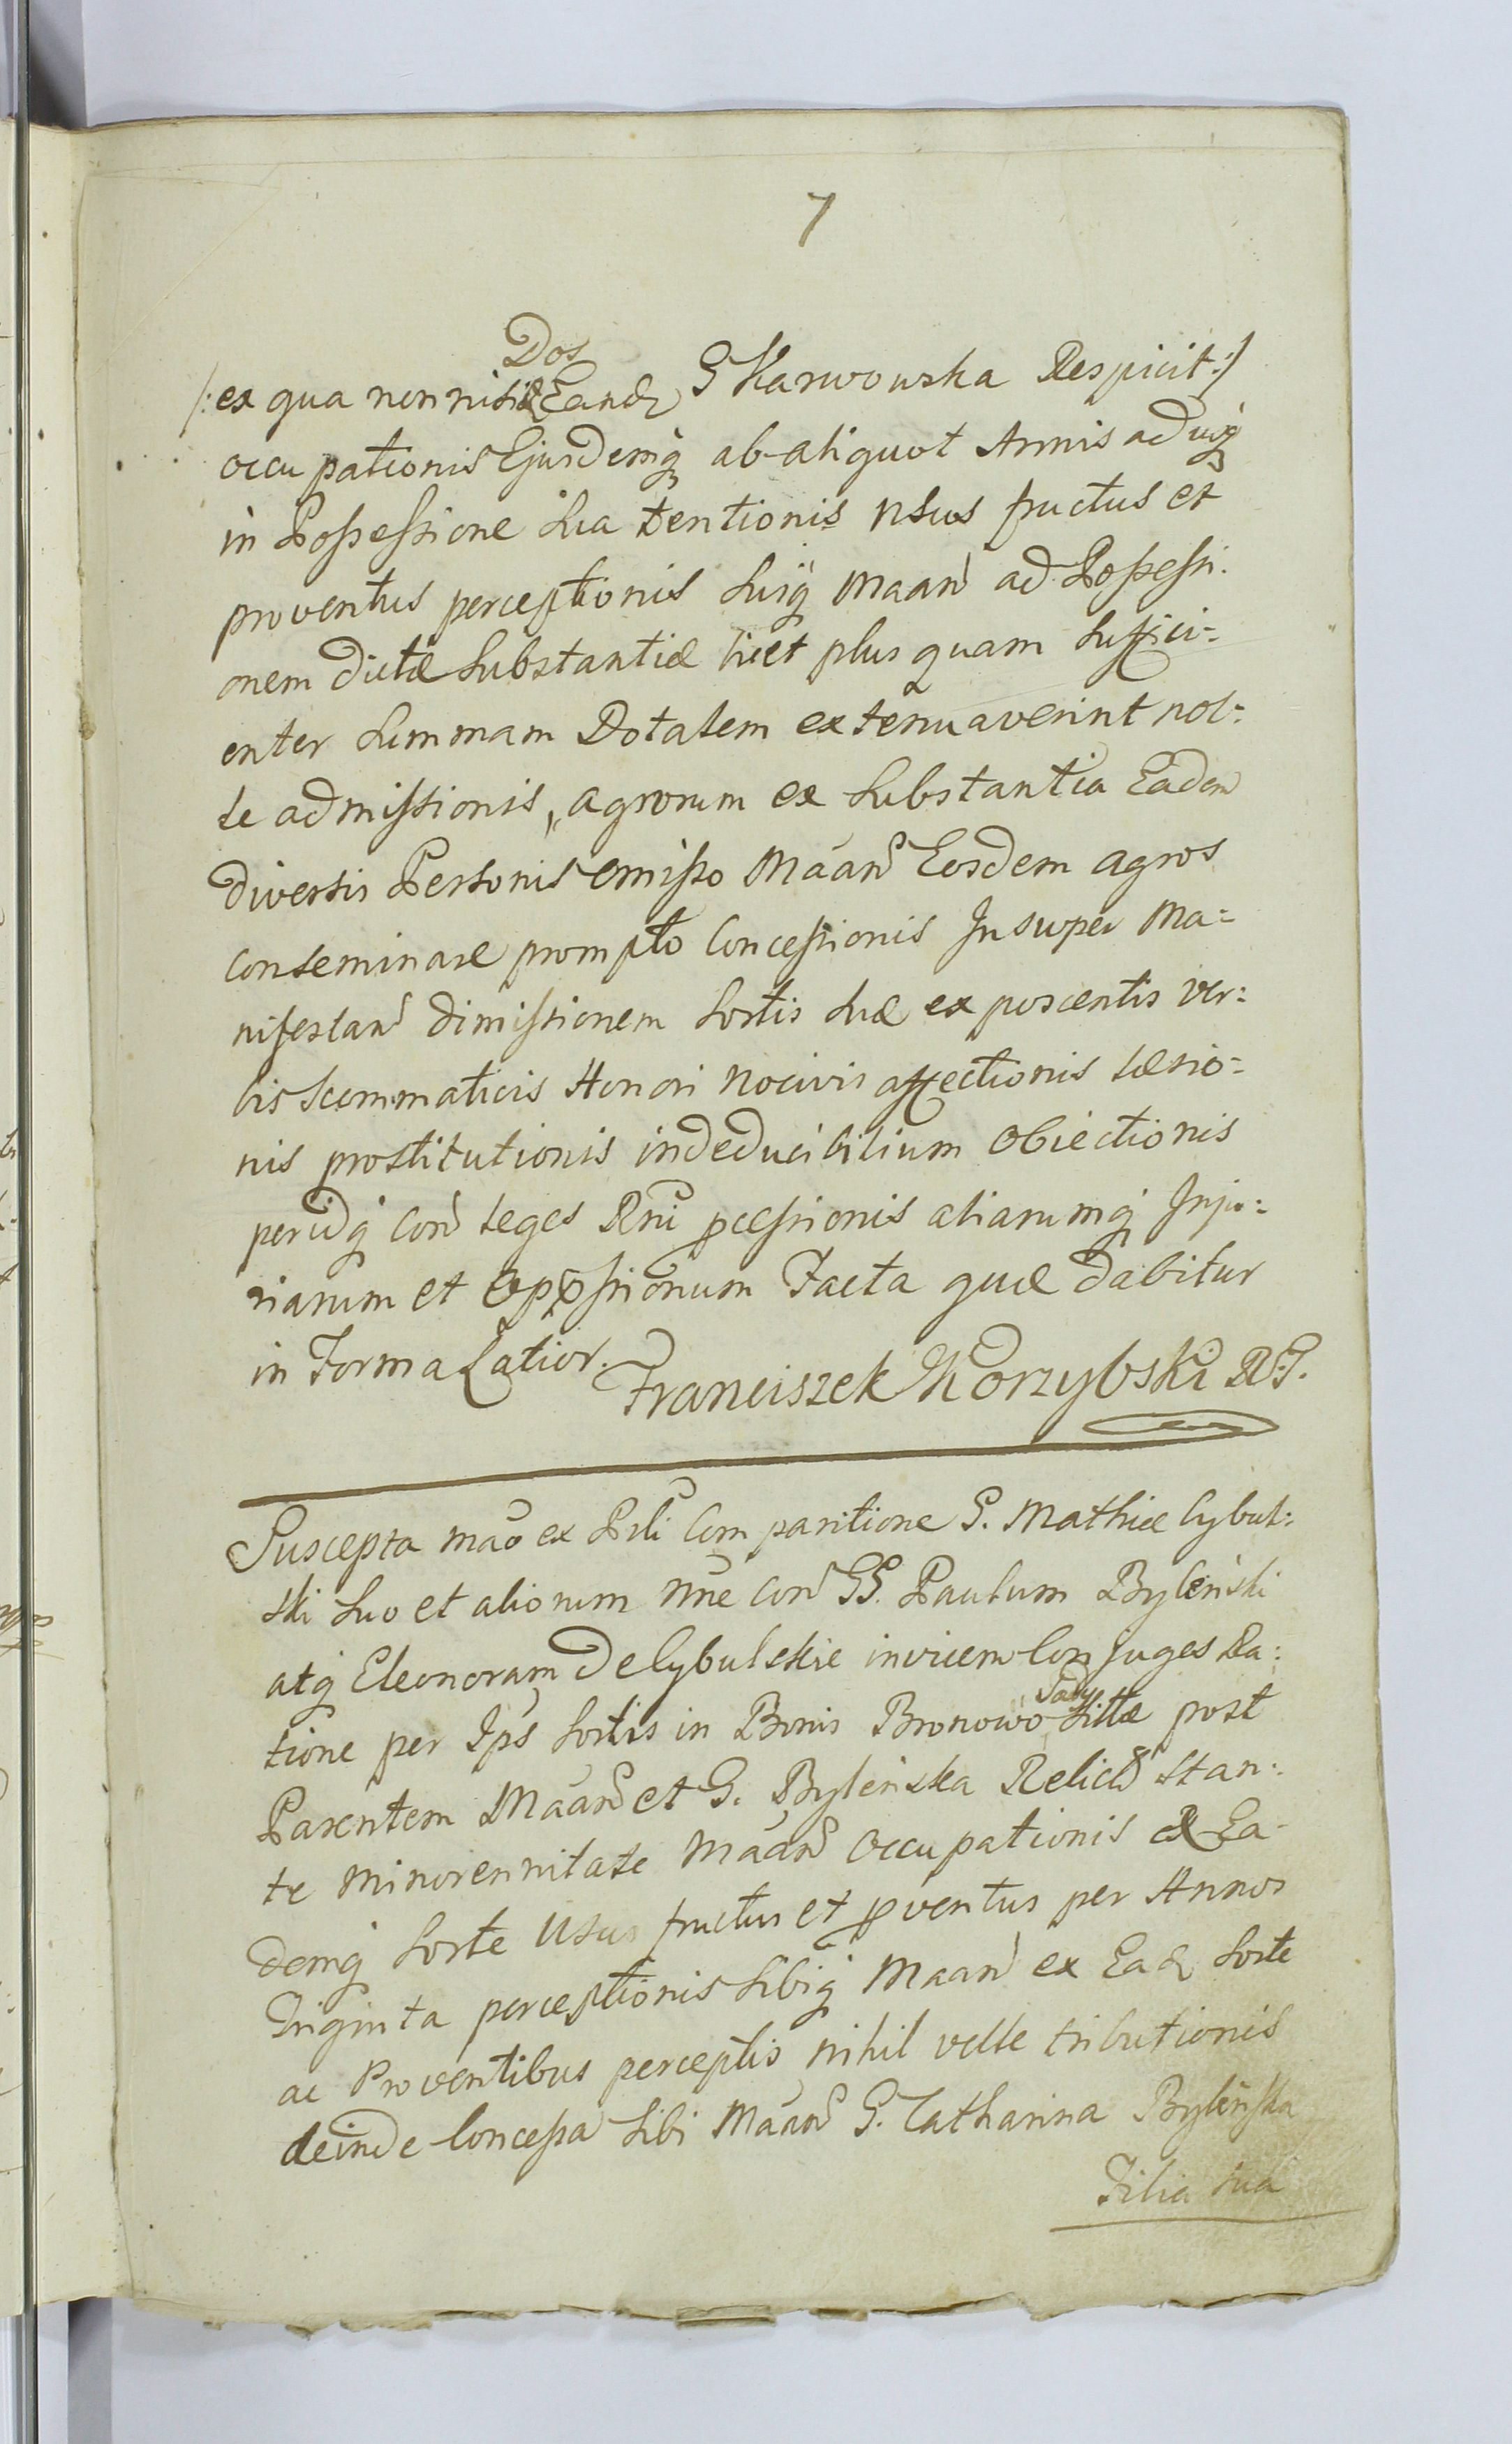 7
Dos
/: ex qua non nisi Eand G Karwowska Respicit :/
occupationis Ejusdemq ab aliquot Annis ad usq
in Possessione sua tentionis usus fructus et
proventus perceptionis suiq Maan ad Possessi-
onem dictæ substantiæ licet plus quam suffici=
enter summam Dotalem extenuaverint nol=
le admissionis, agrorum ex substantia Eadem
diversis Personis emisso Maan Eosdem agros
conseminare prompto Concessionis Insuper Ma=
nifestan dimissionem sortis suæ exposcentis ver=
bis scommaticis Honori nocivis affectionis læsio=
nis prostitutionis indeducibilium Obiectionis
peridq con leges Rni pcessionis aliarumq Inju=
riarum et oppssionum Facta quæ dabitur
in Forma Latior.
Franciszek Korzybski R.G.
Suscepta mão ex Psli Comparitione G. Mathiæ Cybul=
ski suo et aliorum nne con GG. Paulum Byleński
atq Eleonoram de Cybulskie invicem Conjuges Ra=
tione per Ips sortis in Bonis Bronowo
Sady
sittæ post
Parentem Maan et G. Byleńska Relict stan=
te minorennitate Maan occupationis ex Ea-
demq sorte Usus fructus et pventus per Annos
Triginta perceptionis sibiq Maan ex Ead sorte
ac Proventibus perceptis nihil velle tributionis
deinde Concessa sibi Maan G. Catharina Byleńska
Filia sua